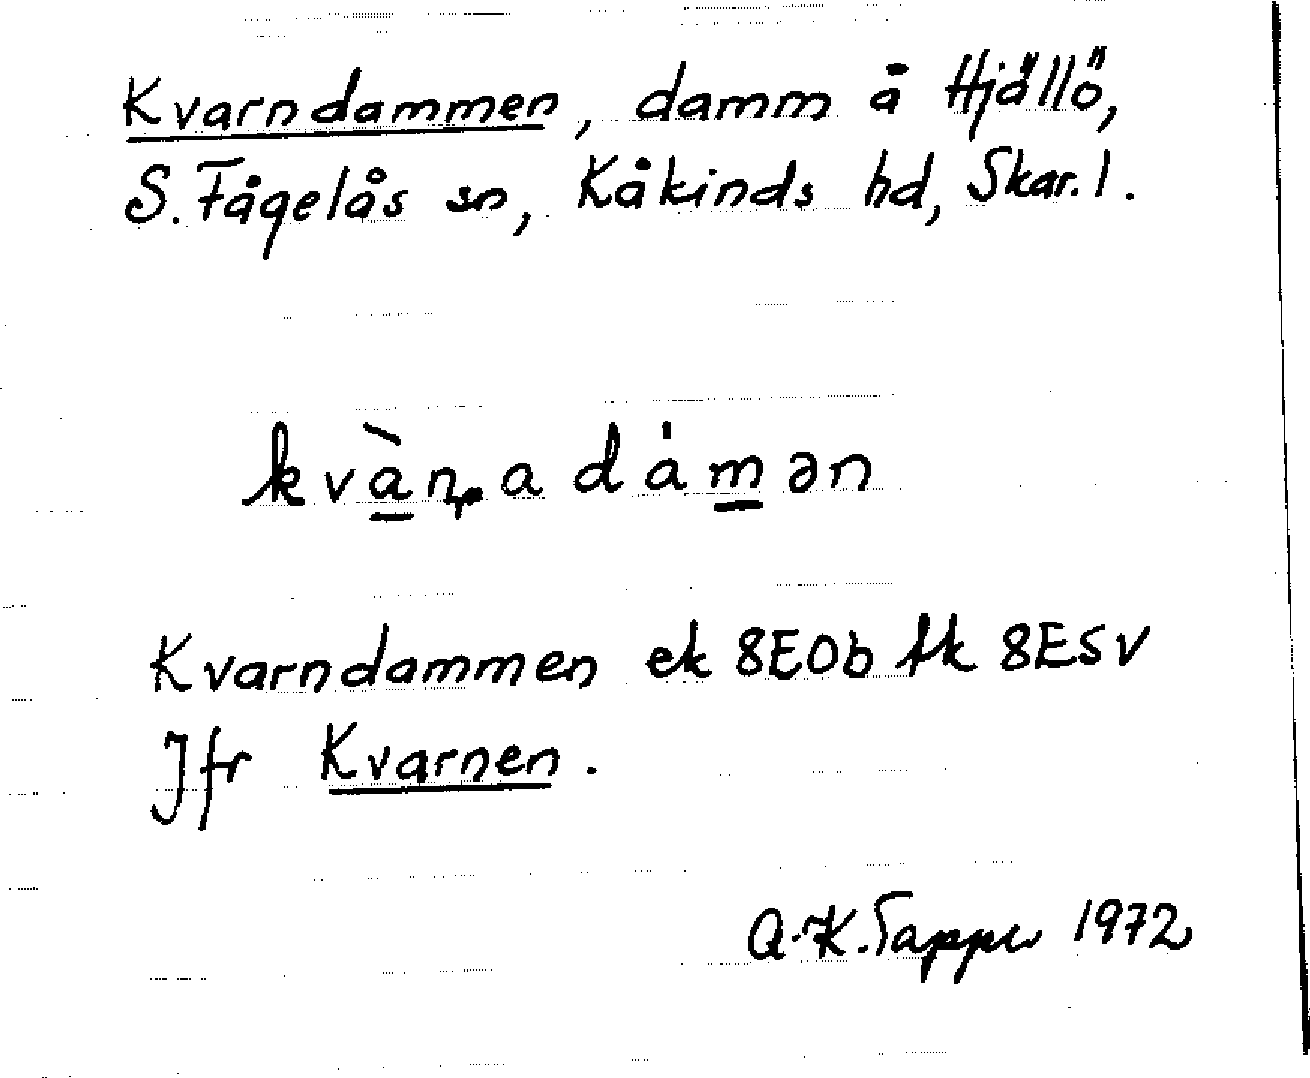 Kvarndammen, damm å Hjällö,
S. Fågelås sn, Kåkinds hd, Skar. l.
kvàṇadámən
Kvarndammen ek 8E0b fk 8ESV
Jfr Kvarnen.
A-K. Tapper 1972